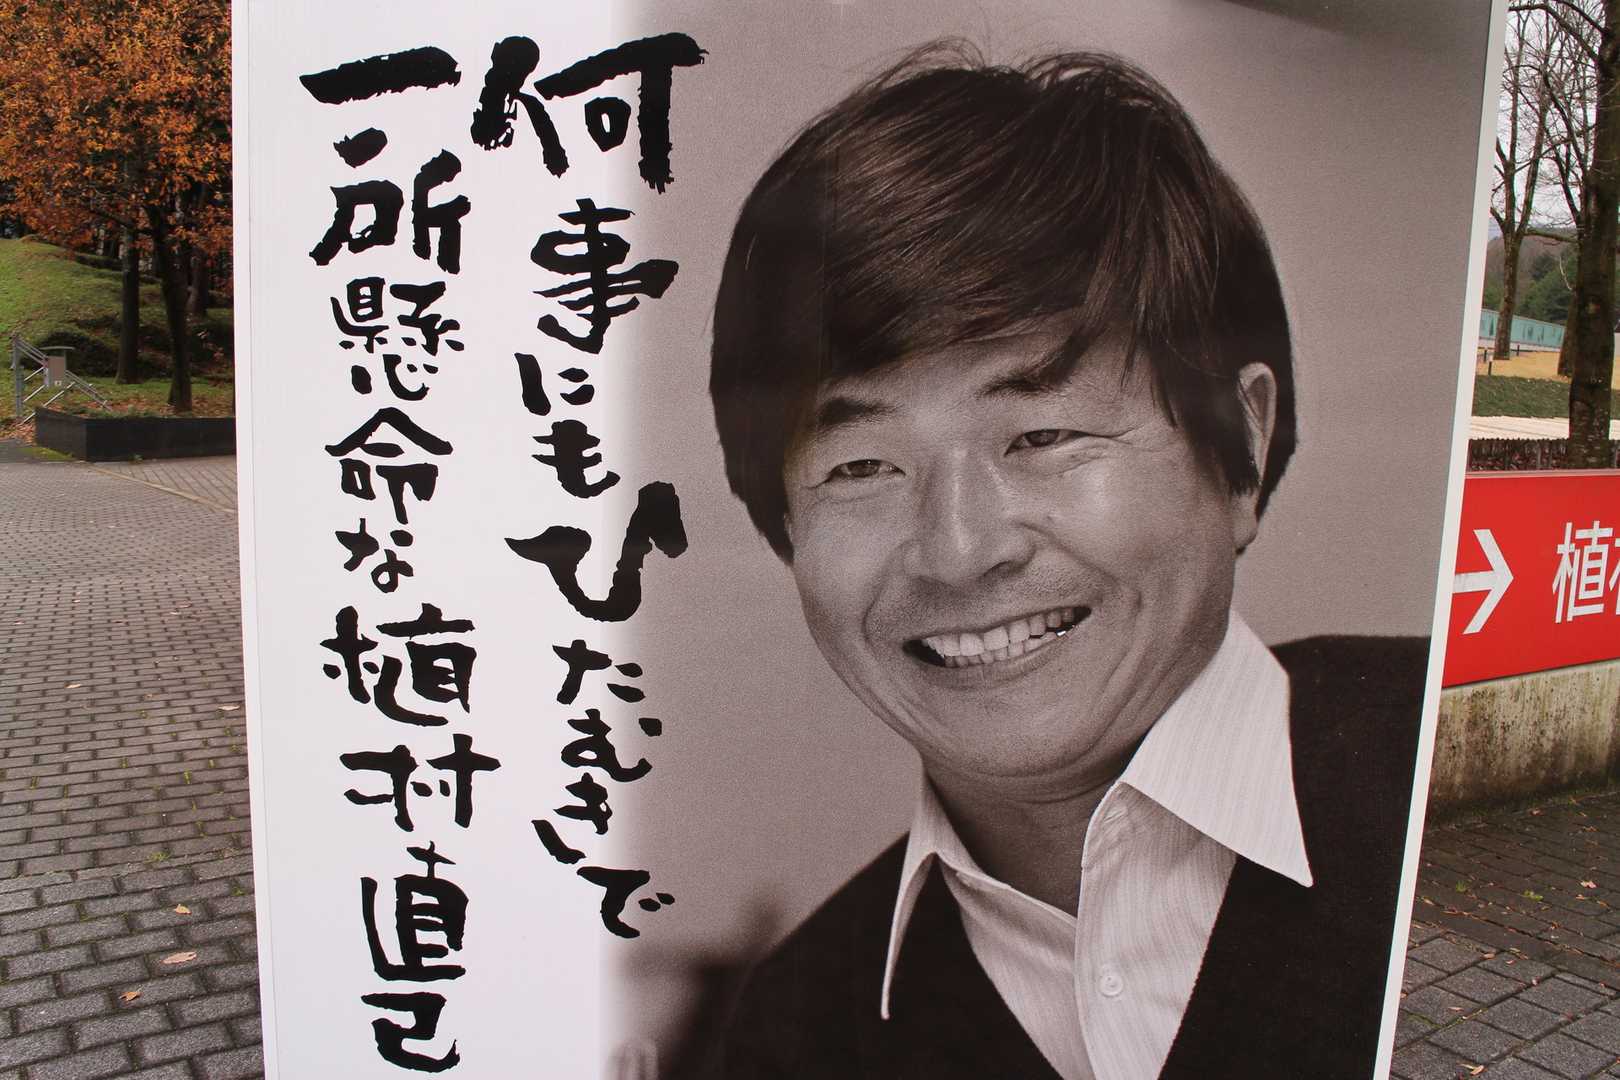 何事にもひたむきで
一所懸命な植村直己
→ 植